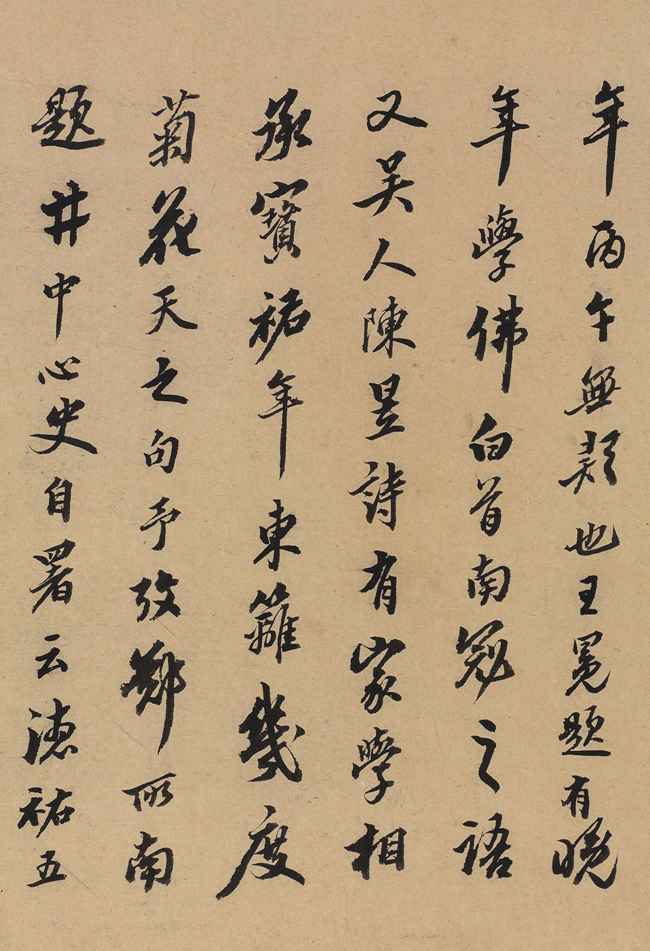 年丙午無疑也王冕題有晚
年學佛白首南冠之語
又吴人陳昱詩有家學相
承寳祐年東籬幾度
菊花天之句予攷鄭所南
題井中心史自署云德祐五